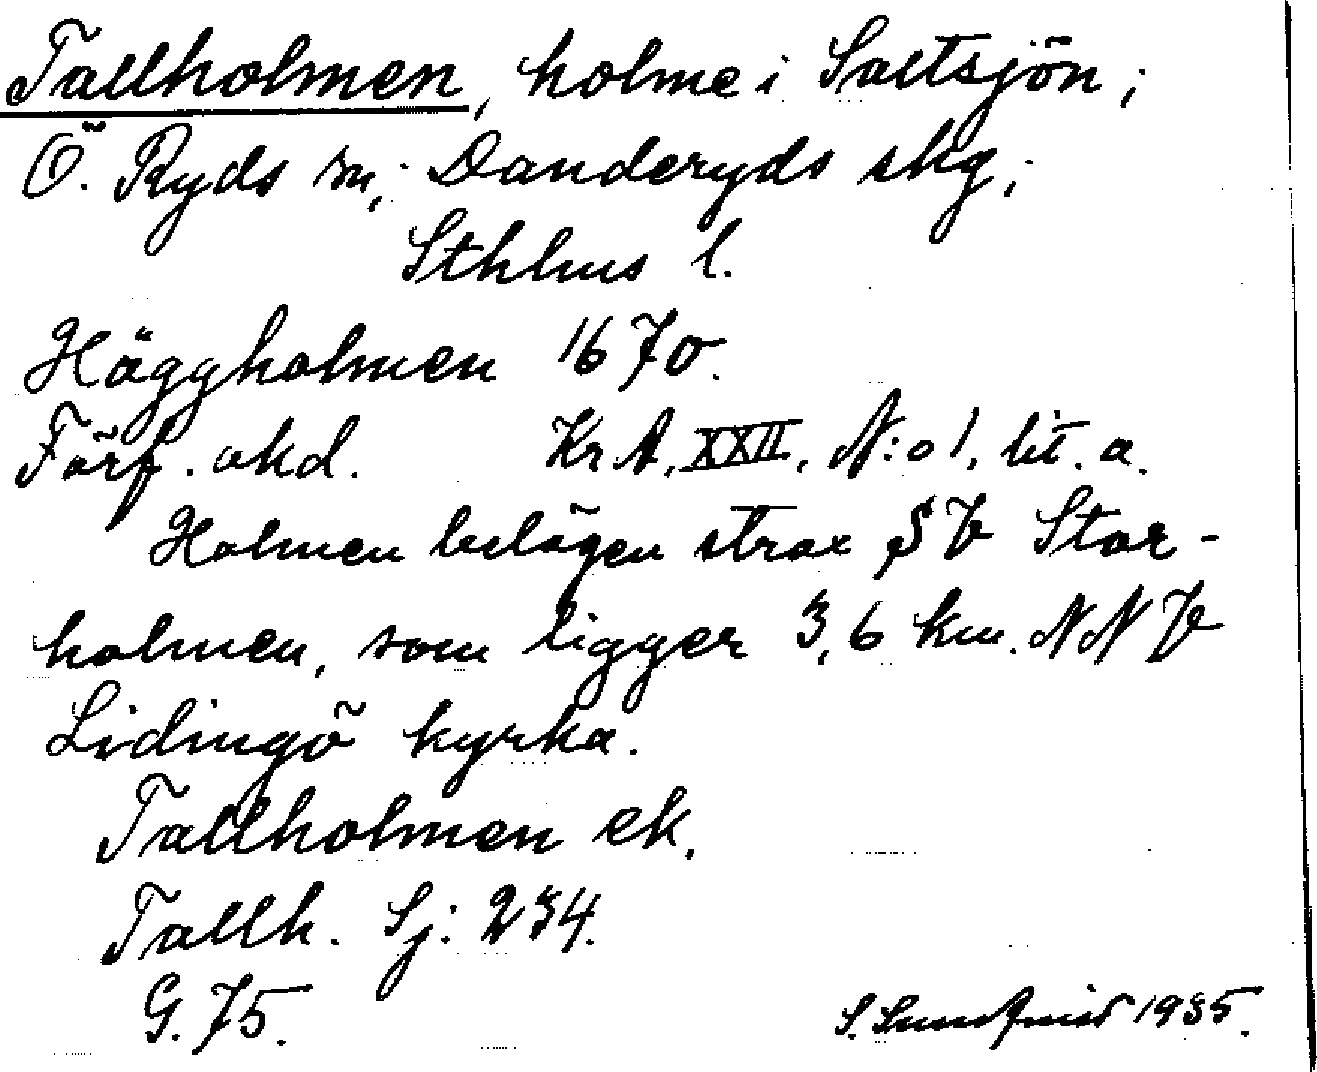 Tallholmen, holme i Saltsjön;
Ö. Ryds sn; Danderyds skg;
Sthlms l.
Häggholmen 1670.
Förf. okd. KrA, XXII, N:o 1, lit. a.
Holmen belägen strax SV Stor-
holmen, som ligger 3,6 km. NNV
Lidingö kyrka.
Tallholmen ek.
Tallh. Sj: 234.
G. 75.
S. Sundqvist 1935.